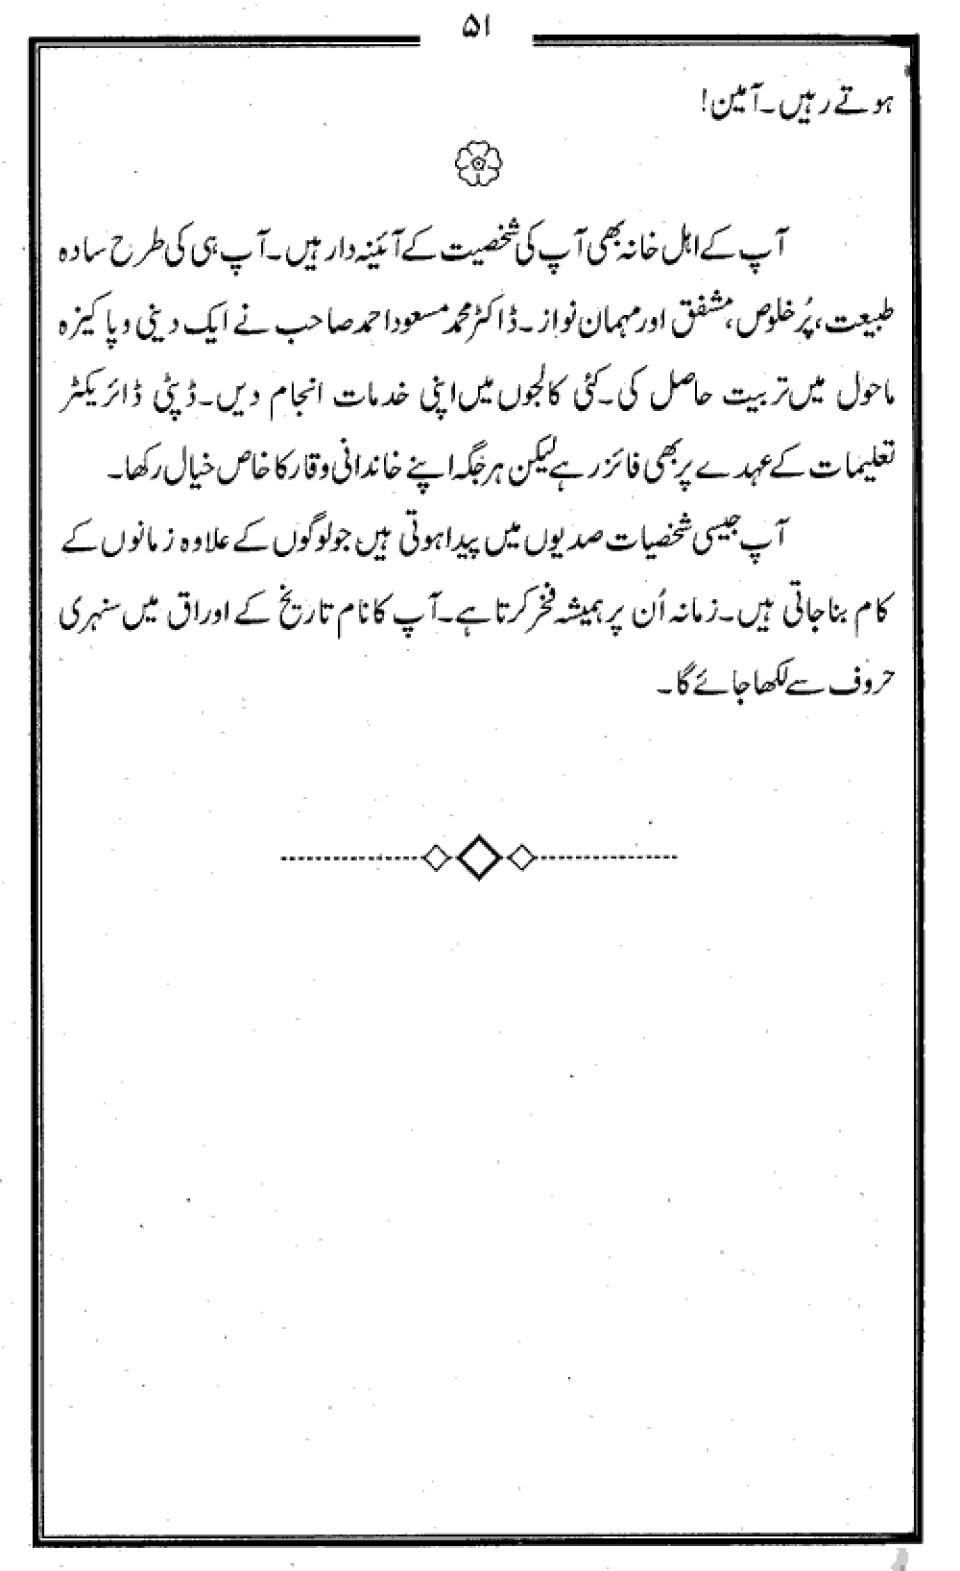 ۵۱
ہوتے رہیں۔ آمین!
آپ کے اہل خانہ بھی آپ کی شخصیت کے آئینہ دار ہیں۔ آپ ہی کی طرح سادہ
طبیعت، پُر خلوص، مشفق اور مہمان نواز۔ ڈاکٹر محمد مسعود احمد صاحب نے ایک دینی و پاکیزہ
ماحول میں تربیت حاصل کی۔ کئی کالجوں میں اپنی خدمات انجام دیں۔ ڈپٹی ڈائریکٹر
تعلیمات کے عہدے پر بھی فائز رہے لیکن ہر جگہ اپنے خاندانی وقار کا خاص خیال رکھا۔
آپ جیسی شخصیات صدیوں میں پیدا ہوتی ہیں جو لوگوں کے علاوہ زمانوں کے
کام بنا جاتی ہیں۔ زمانہ اُن پر ہمیشہ فخر کرتا ہے۔ آپ کا نام تاریخ کے اوراق میں سنہری
حروف سے لکھا جائے گا۔